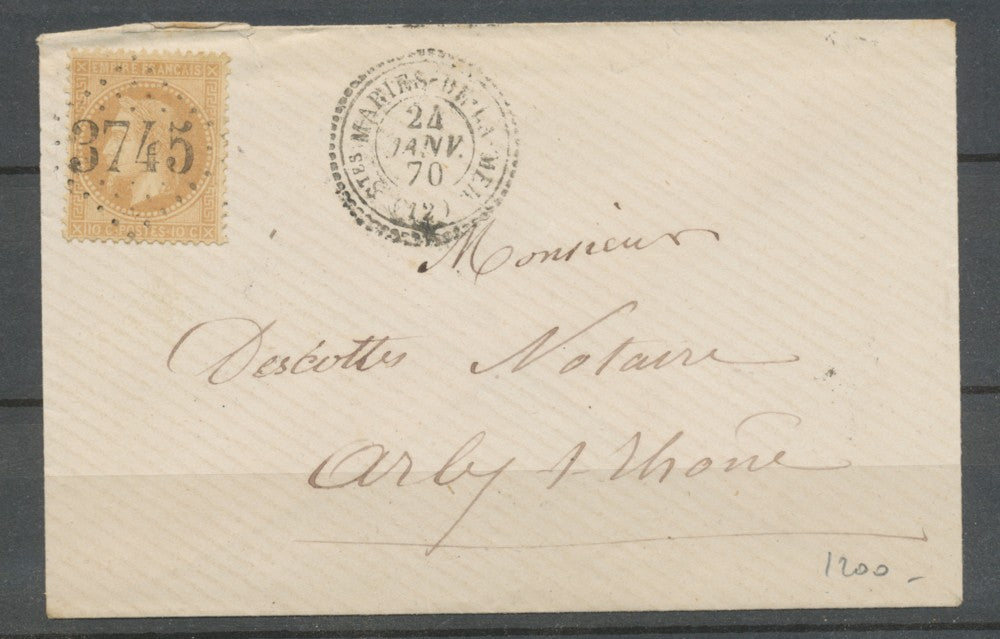 EMPIRE FRANCAIS
3745
10 C. POSTES 10 C.
STES MARIES-DE-LA-MER
24
JANV.
70
(12)
Monsieur
Descottes Notaire
Arles s/ Rhône
1200 -